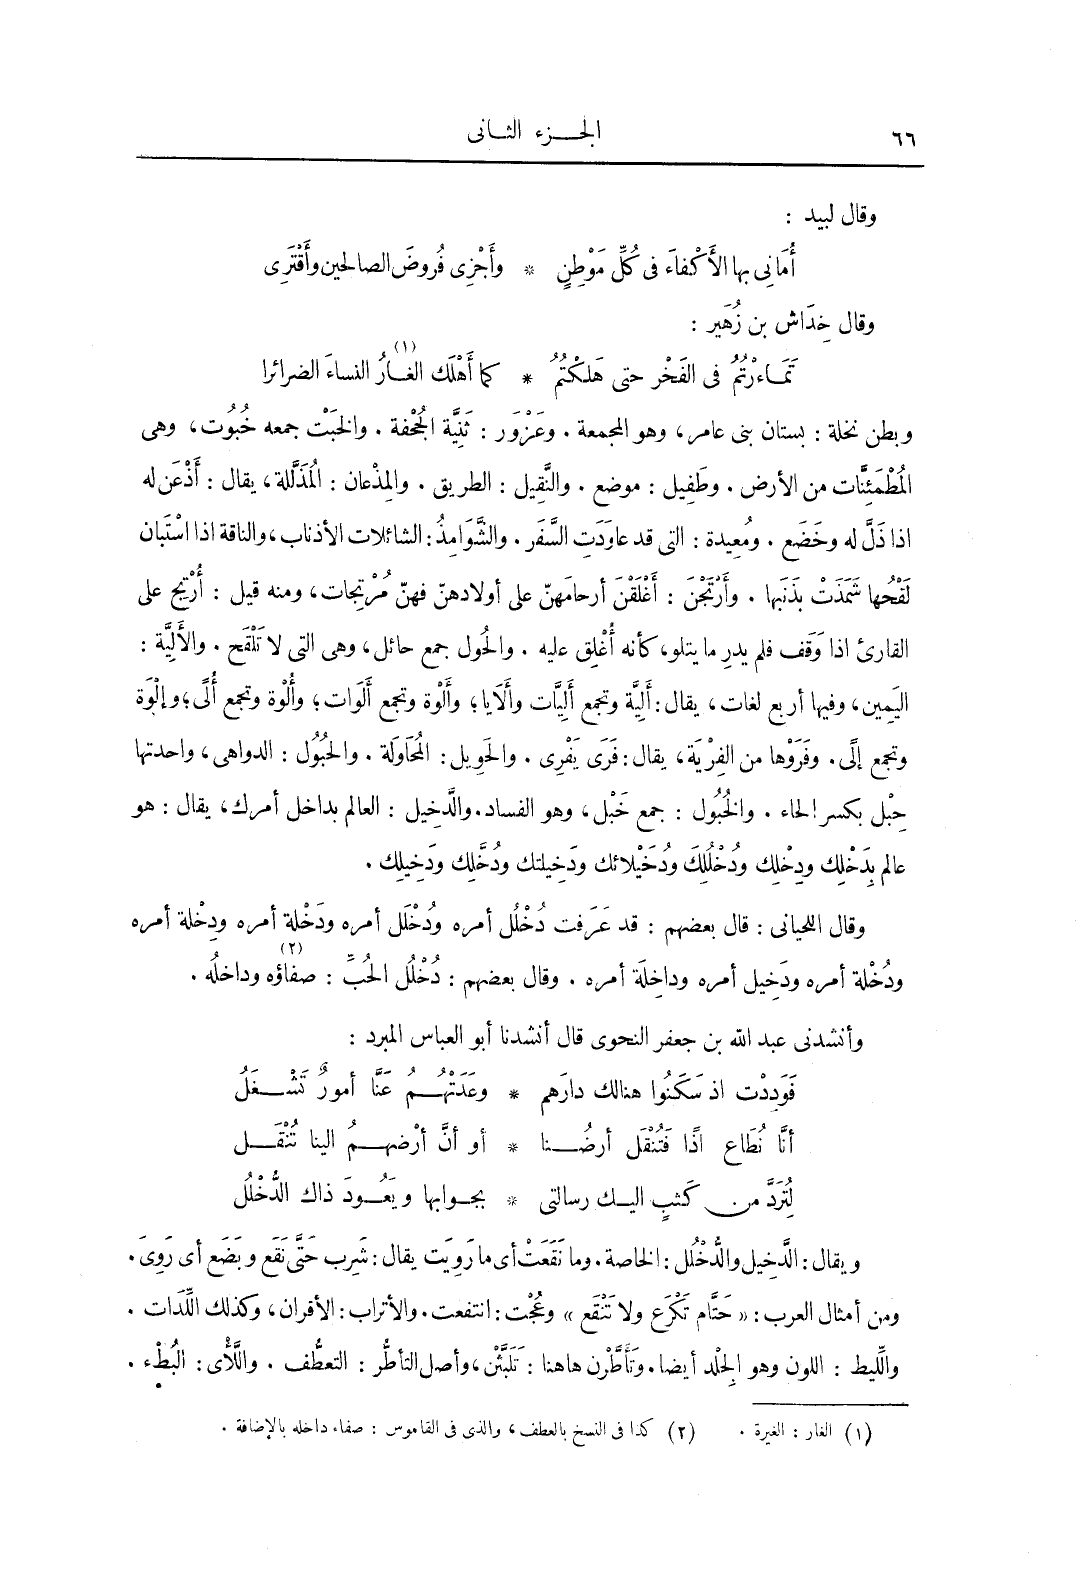 ٦٦
الجـــزء الثـانى
وقال لبيد :
أُمَانِى بها الأَكْفاءَ فى كُلِّ مَوْطِنٍ * وأَجْزِى فُروضَ الصالحين وأَقْتَرِى
وقال خِدَاش بن زُهَير :
تَمَـاءرْتُمُ فى الفَخْر حتى هَلَكْتُمُ * كما أَهْلَك الغَـارُ (١) النساءَ الضرائرا
وبطن نخلة : بستان بنى عامر، وهو المجمعة . وعَزْوَر : ثَنِيَّة الجُحْفة . والخَبْت جمعه خُبُوت، وهى
المُطْمَئِنَّات من الأرض . وطَفِيل : موضع . والنَّقِيل : الطريق . والمِذْعان : المُذَلَّلة، يقال : أَذْعَن له
اذا ذَلَّ له وخَضَع . ومُعِيدة : التى قد عاوَدَتِ السَّفَر . والشَّوَامِذُ : الشائلات الأذناب، والناقة اذا اسْتَبان
لَقْحُها شَمَذَتْ بذَنَبها . وأَرْتَجْنَ : أَغْلَقْنَ أرحامَهنّ على أولادهنّ فهنّ مُرْتِجات، ومنه قيل : أُرْتِج على
القارئ اذا وَقَف فلم يدرِ ما يتلو، كأنه أُغْلِق عليه . والحُول جمع حائل، وهى التى لا تَلْقَح . والأَلِيَّة :
اليَمِين، وفيها أربع لغات، يقال : أَلِيَّة وتجمع أَلِيَّات وأَلَايا؛ وأَلْوة وتجمع أَلَوات؛ وأُلْوة وتجمع أُلًى؛ وإِلْوَة
وتجمع إِلًى. وفَرَوْها من الفِرْيَة، يقال : فَرَى يَفْرِى . والحَوِيل : المُحَاوَلة . والحُبُول : الدواهى، واحدتها
حِبْل بكسر الحاء . والخُبُول : جمع خَبْل، وهو الفساد . والدَّخِيل : العالم بداخل أمرك، يقال : هو
عالم بِدَخْلِك ودِخْلِك ودُخْلُلِكَ ودُخَيْلائك ودَخِيلتك ودُخَّلِك ودَخِيلِك .
وقال اللحيانى : قال بعضهم : قد عَرَفت دُخْلُل أمره ودُخْلَل أمره ودَخْلة أمره ودِخْلة أمره
ودُخْلة أمره ودَخِيل أمره وداخِلَة أمره . وقال بعضهم : دُخْلُل الحُبِّ : صفاؤه وداخلُه (٢) .
وأنشدنى عبد الله بن جعفر النحوى قال أنشدنا أبو العباس المبرد :
فَوَدِدْت اذ سَكَنُوا هنالك دارَهم * وعَدَتْهُـــمُ عَنَّا أمورٌ تَشْــغَلُ
أنَّا نُطَاع اذًا فَتُنْقَل أرضُــــنا * أو أنَّ أرْضهـــمُ الينا تُنْقَـــل
لِتُرَدَّ مـن كَثبٍ اليـك رسالتى * بجـوابها ويَعُـودَ ذاك الدُّخْلُل
ويقال : الدَّخِيل والدُّخْلُل : الخاصة . وما نَقَعَتْ أى ما رَوِيَت يقال : شَرِب حَتَّى نَقَع وبَضَع أى رَوِىَ .
ومن أمثال العرب : «حَتَّام تَكْرَع ولا تَنْقَع» وعُجْت : انتفعت. والأتراب : الأقران، وكذلك اللِّدَات .
واللِّيط : اللون وهو الجِلْد أيضا . وتَأَطَّرْن هاهنا : تَلَبَّثْن، وأصل التأطُّر : التعطُّف . واللَّأْى : البُطْء .
(١) الغار : الغيرة . (٢) كذا فى النسخ بالعطف، والذى فى القاموس : صفاء داخله بالإضافة .